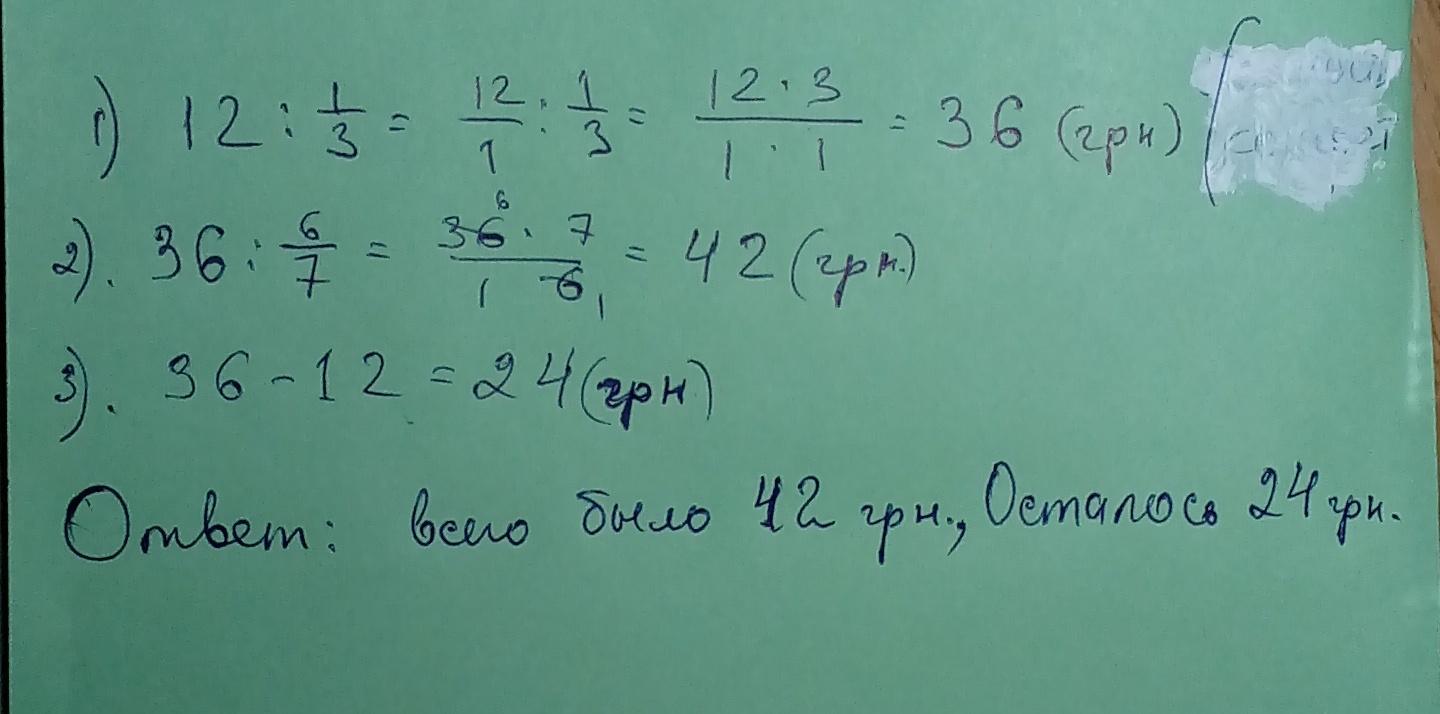 1) 12 : 1/3 = 12/1 : 1/3 = 12 · 3 / 1 · 1 = 36 (грн)
2). 36 : 6/7 = 36 6 · 7 / 1 6 1 = 42 (грн.)
3). 36 - 12 = 24 (грн)
Ответ: всего было 42 грн., Осталось 24 грн.